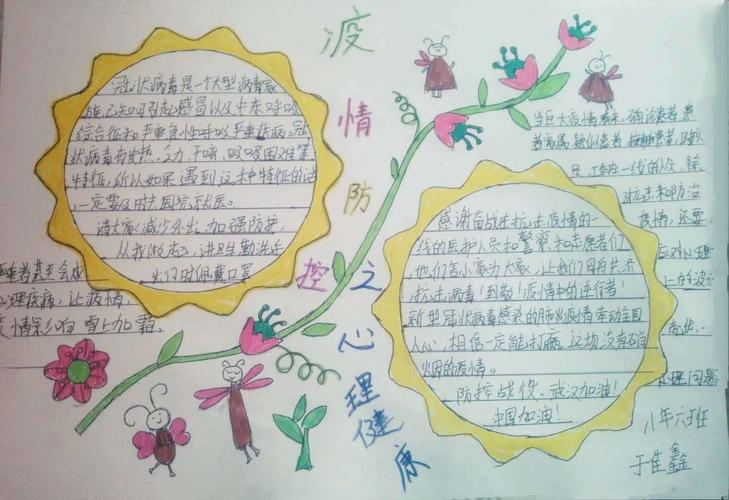 疫情防控之心理健康
冠状病毒是一个大型病毒家
族,已知可引起感冒以及中东呼吸
综合征和严重急性呼吸
严重疾病。冠
状病毒有发热、乏力、干咳、呼吸困难等
特征,所以如果遇到这种特征的话
一定要及时去医院
请大家减少外出,加强防护,
从我做起,讲卫生勤洗手
出门时佩戴口罩
当巨大疫情袭来,确诊患者
者家属,疑似患者
工作在一线的人员,除
抗击和防治
疫情,还要
应对心理
上的
心理问题
严重者甚至会成
心理疾病,让疫情
疫情影响 雪上加霜
感谢奋战在抗击疫情的一
线的医护人员和警察和志愿者们
他们舍小家为大家,让我们
抗击病毒!
疫情中的逆行者!
新型冠状病毒感染的肺炎疫情牵动全国
人心,相信一定能打赢这场没有硝
烟的疫情。
防控战役,武汉加油!
中国加油!
八年六班
于佳鑫